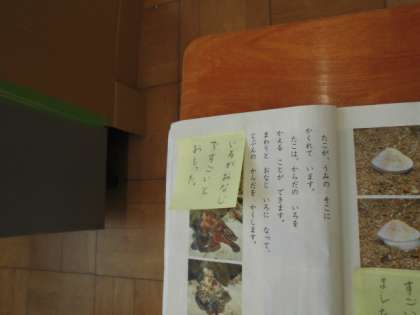 たこが、うみの そこに
かくれて います。
たこは、からだの いろを
かえる ことが できます。
まわりと おなじ いろに なって、
じぶんの からだを かくします。
いろがおなじ
ですごいと
おもった。
すごい
ました